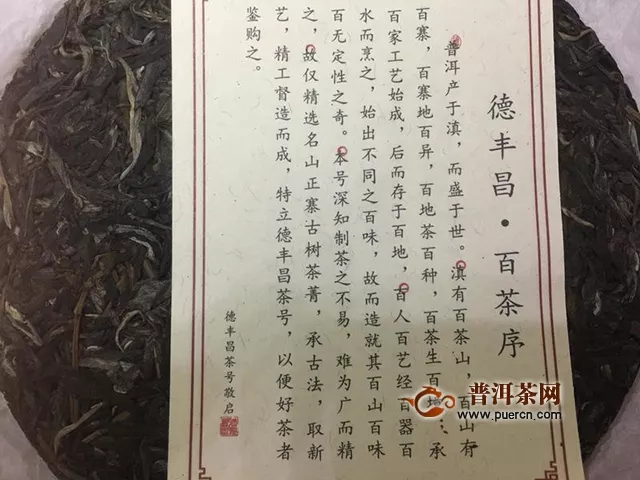 德丰昌·百茶序
普洱产于滇，而盛于世。滇有百茶山，百山有
百寨，百寨地百异，百地茶百种，百茶生百地……承
百家工艺始成，后而存于百地，百人百艺经百器百
水而烹之，始出不同之百味，故而造就其百山百味
百无定性之奇。本号深知制茶之不易，难为广而精
之，故仅精选名山正寨古树茶菁，承古法，取新
艺，精工督造而成，特立德丰昌茶号，以便好茶者
鉴购之。
德丰昌茶号敬启
普洱茶网
www.puercn.com